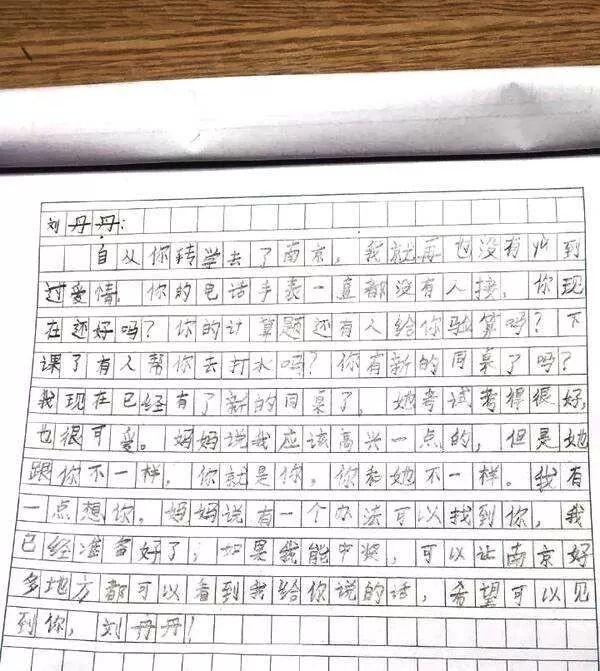 刘丹丹:
自从你转学去了南京，我就再也没有收到
过爱情。你的电话手表一直都没有人接，你现
在还好吗？你的计算题还有人给你验算吗？下
课了有人帮你去打水吗？你有新的同桌了吗？
我现在已经有了新的同桌了，她考试考得很好，
也很可爱。妈妈说我应该高兴一点的，但是她
跟你不一样，你就是你，你和她不一样。我有
一点想你，妈妈说有一个办法可以找到你，我
已经准备好了，如果我能中奖，可以让南京好
多地方都可以看到我给你说的话，希望可以见
到你，刘丹丹！